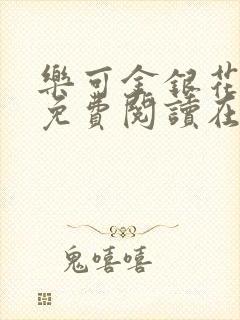 樂可金銀花
免費閱讀在
鬼嘻嘻